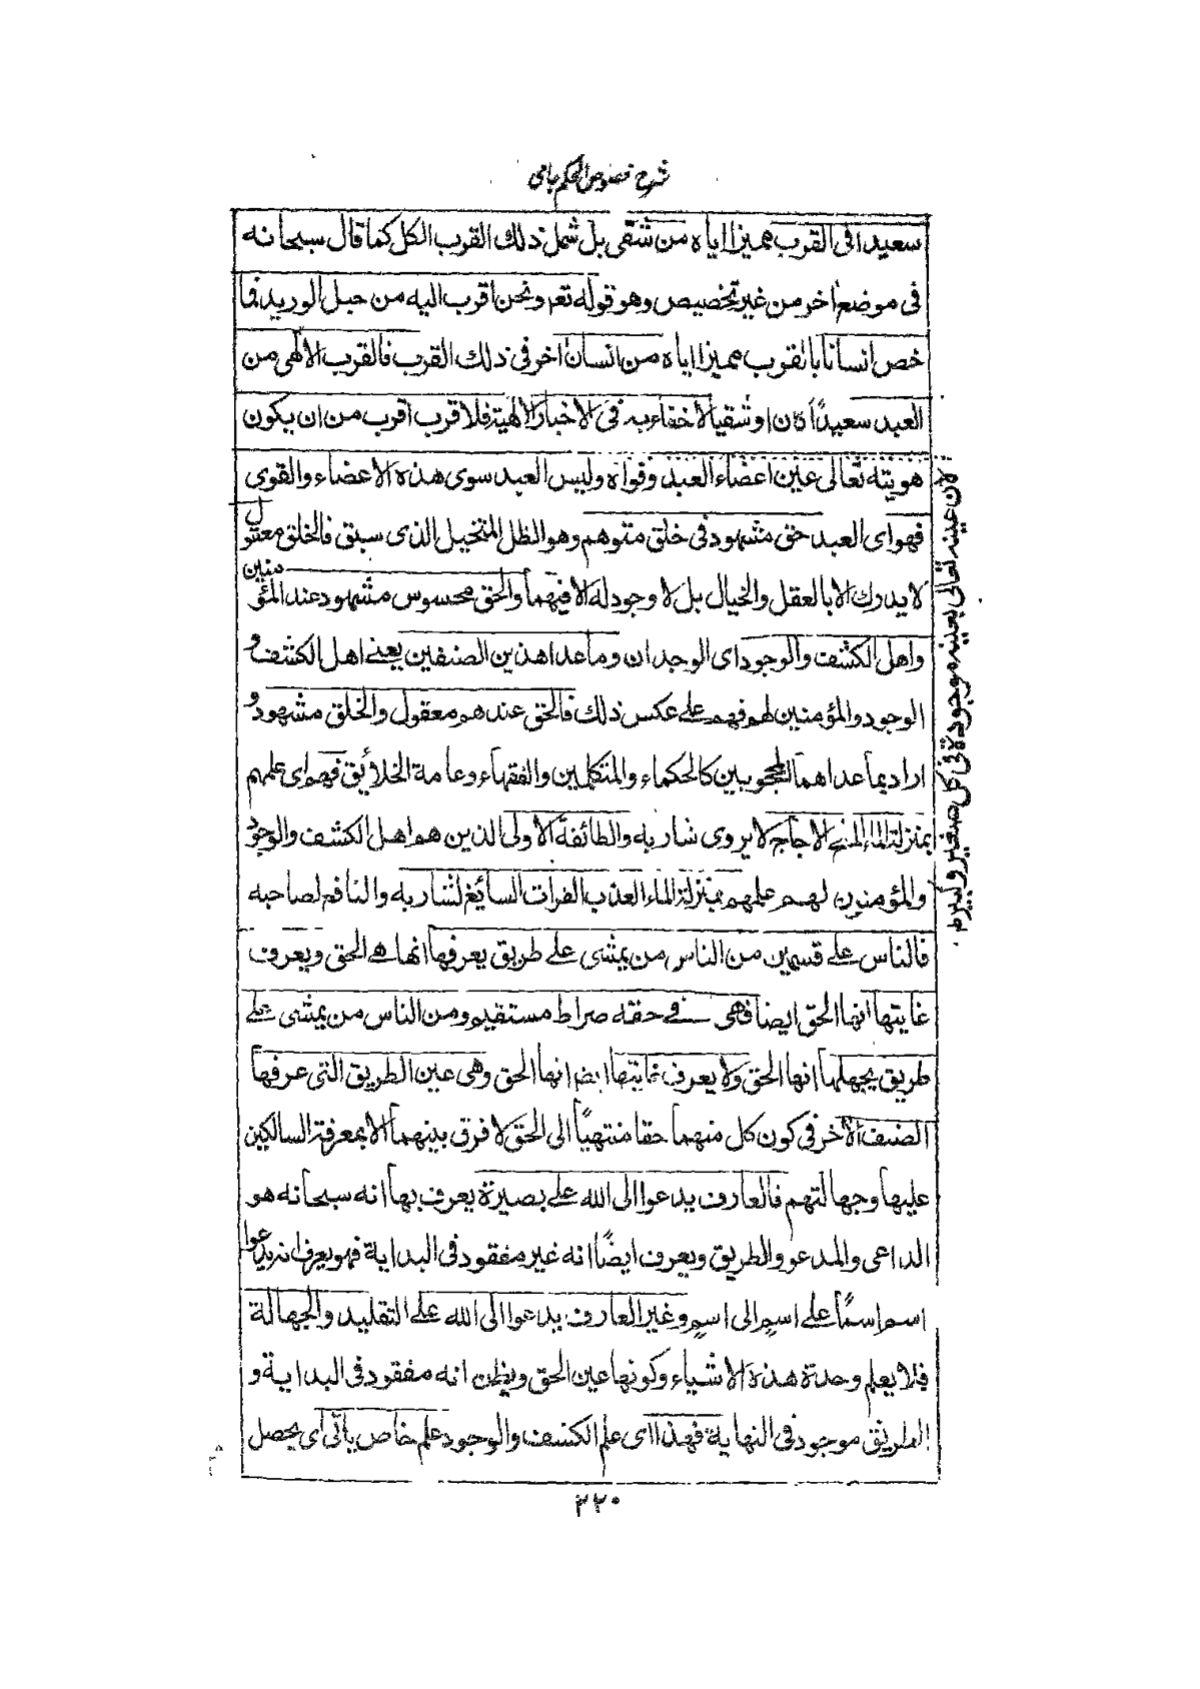 شرح فصوص الحكم جامى
سعيدا فى القرب مميزا اياه من شقى بل شمل ذلك القرب الكل كما قال سبحانه
فى موضع اخر من غير تخصيص وهو قوله تعم ونحن اقرب اليه من حبل الوريد فما
خص انسانا بالقرب مميزا اياه من انسان اخر فى ذلك القرب فالقرب الالهى من
العبد سعيدًا كان او شقيا لاخفاء به فى الاخبار الالهية فلا قرب اقرب من ان يكون
هويته تعالى عين اعضاء العبد وقواه وليس العبد سوى هذه الاعضاء والقوى
فهو اى العبد حق مشهود فى خلق متوهم وهو الظل المتخيل الذى سبق فالخلق معقول
لا يدرك الا بالعقل والخيال بل لا وجود له الا فيهما والحق محسوس مشهود عند المؤمنين
واهل الكشف والوجود اى الوجدان وما عدا هذين الصنفين يعنے اهل الكشف و
الوجود والمؤمنين لهم فهم علے عكس ذلك فالحق عندهو معقول والخلق مشهود و
اراد بما عداهما المحجوبين كالحكماء والمتكلمين والفقهاء وعامة الخلائق فهو اى علمهم
بمنزلة الماء الملح الاجاج لا يروى شاربه والطائفة الاولى الذين هم اهل الكشف والوجود
والمؤمنون لهم علمهم بمنزلة الماء العذب الفرات السائغ لشاربه والنافع لصاحبه
فالناس علے قسمين من الناس من يمشى علے طريق يعرفها انها هے الحق ويعرف
غايتها انها الحق ايضا فهى فے حقه صراط مستقيم ومن الناس من يمشى علے
طريق يجهلها انها الحق ولا يعرف غايتها ايضا انها الحق وهى عين الطريق التى عرفها
الصنف الاخر فى كون كل منهما حقا منتهياً الى الحق لا فرق بينهما الا بمعرفة السالكين
عليها وجهالتهم فالعارف يدعوا الى الله علے بصيرة يعرف بها انه سبحانه هو
الداعى والمدعو والطريق ويعرف ايضًا انه غير مفقود فى البداية فهو يعرف انه يدعوا
اسم اسمًا علے اسمٍ الى اسمٍ وغير العارف يدعوا الى الله علے التقليد والجهالة
فلا يعلم وحدة هذه الاشياء وكونها عين الحق ويظن انه مفقود فى البداية و
الطريق موجود فى النهاية فهذا اى علم الكشف والوجود علم خاص يأتى اى يحصل
لان عينه تعالى بعينه موجودة فى كل صغير وكبير
٢٢٠